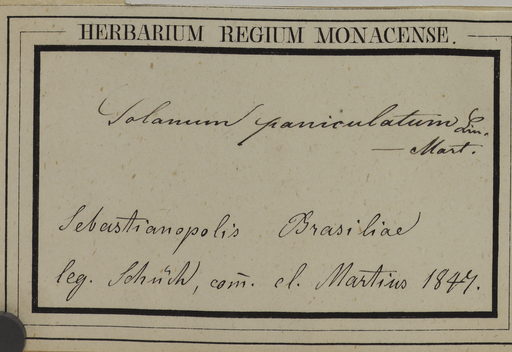 HERBARIUM REGIUM MONACENSE.
Solanum paniculatum Lin.
— Mart.
Sebastianopolis Brasiliae
leg. Schüch, com̄. cl. Martius 1847.